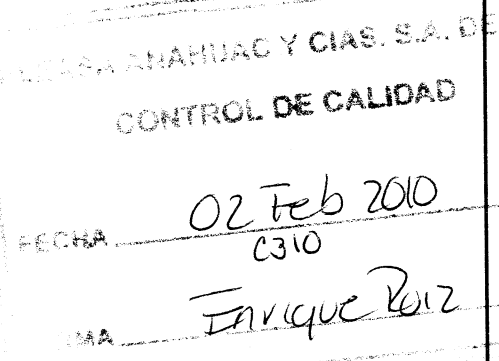 ANAHUAC Y CIAS. S.A. DE
CONTROL DE CALIDAD
FECHA 02 Feb 2010
C310
MA Enrique Ruiz